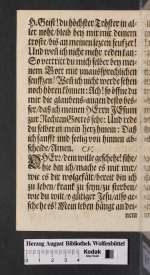 O Geist! du höchster Tröster in al-
ler noht, bleib bey mir mit deinem
trost, biß an meinen letzten seufzer!
Und weil ich nicht mehr reden kan:
So vertritt du mich selber bey mei-
nem Gott mit unaussprechlichen
seuffzen! Weil ich nicht werde sehen
noch hören können: Ach! so öffne du
mir die glaubens-augen desto bes-
ser/ daß ich meinen HErrn JEsum
zur Rechten Gottes sehe: Und rede
du selber in mein hertz hinein: Daß
ich sanfft und seelig von hinnen ab-
scheide/ Amen.
O HErr/ dein wille geschehe! siehe/
hie bin ich/ mache es mit mir/
wie es dir wolgefält: bereit bin ich
zu leben/ kranck zu seyn/ zu sterben/
wie du wilt/ o gütiger Jesu/ also ge-
schehe es! Mein leben hänget an dei-
nem
Herzog August Bibliothek Wolfenbüttel